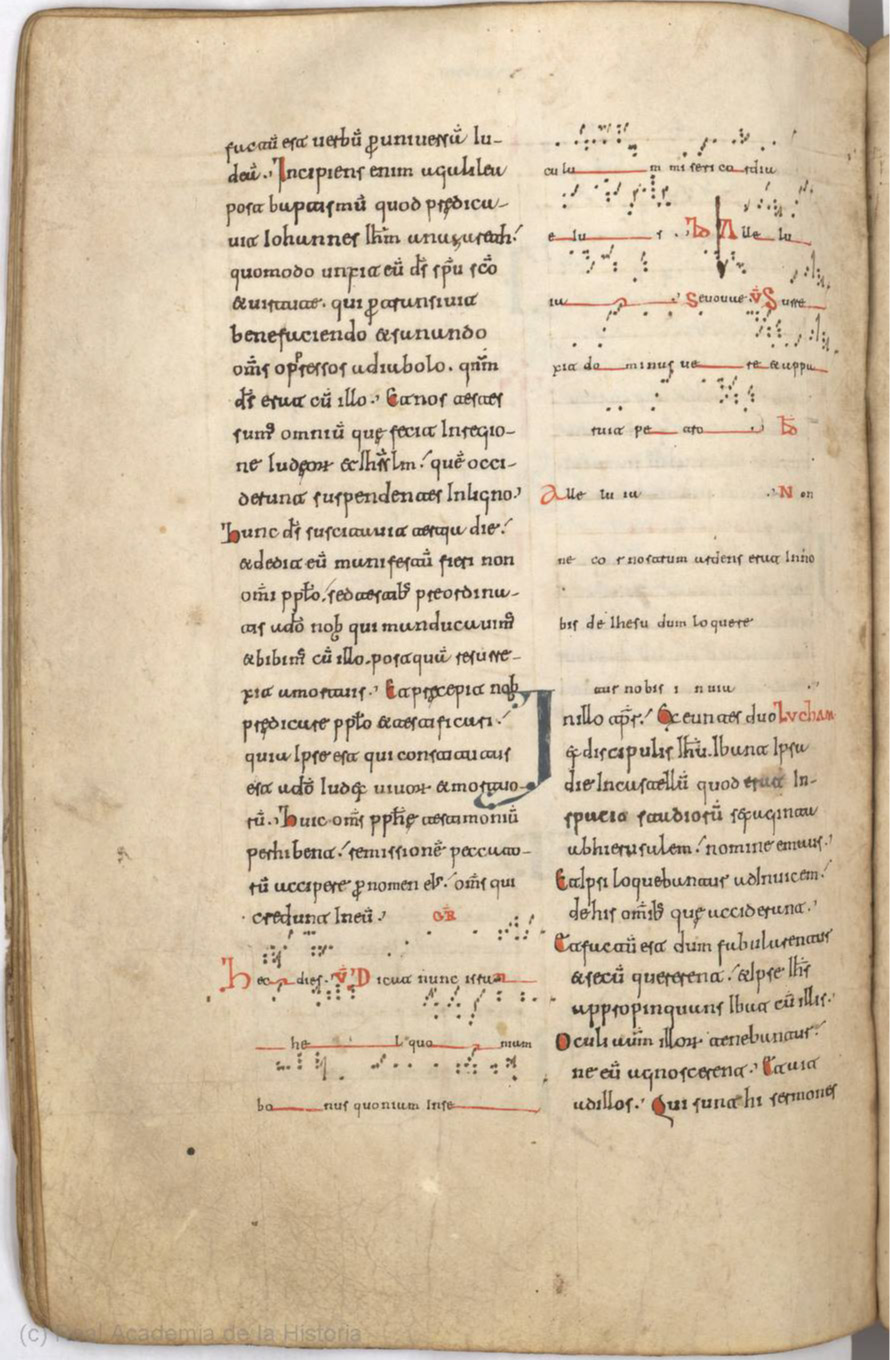 factū est uerbū ꝑuniuersā iu-
deā. Incipiens enim agalilea
post baptismū quod prędica-
uit Iohannes ihm̄ anazareth.
quomodo unxit eū ds̄ spū sc̄o
&uirtute. qui ꝑtransiuit
benefaciendo &sanando
om̄s opressos adiabolo. qm̄
ds̄ erat cū illo. Et nos testes
sumꝰ omniū quę fecit Inregio-
ne Iudęoꝝ & ihrs̄lm. quē occi-
derunt suspendentes Inligno.
Hunc ds̄ suscitauit tertia die.
&dedit eū manifestū fieri non
om̄i pplo. sed testibꝰ preordina-
tis ado̅ nob̄ qui manducauimꝰ
&bibimꝰ cū illo. postquā resurre-
xit amortuis. Et pręcepit nob̄
prędicare pplo &testificari.
quia Ipse est qui constitutus
est ado̅ Iudex uiuoꝝ &mortuo-
rū. Huic om̄s pph̄ę testimoniū
perhibent. remissionē peccato-
rū accipere ꝑ nomen eiꝰ. om̄s qui
credunt Ineū. GR̄
Hec dies. V̄ Dicat nunc isra
hel quo niam
bo nus quoniam Inse
cula m miseri co rdia
e iu s. Alle lu
ia Seuouae. V̄ Surre
xit do minus ue re &appa
ruit pe tro
Alle lu ia Non
ne co r nostrum ardens erat Inno
bis de Ihesu dum loquere
tur nobis i n uia
Lvcham
In illo tp̄r. Exeuntes duo
ex discipulis ihū. Ibant Ipsa
die Incastellū quod erat In-
spacio stadiorū sexaginta
abhierusalem. nomine emaus.
Etipsi loquebantur adInuicem.
dehis om̄ibꝰ quę acciderunt.
Etfactū est dum fabularentur
&secū quererent. &Ipse ihs̄
appropinquans Ibat cū illis.
Oculi autm̄ illoꝝ tenebantur.
ne eū agnoscerent. Et ait
adillos. Qui sunt hi sermones
(c) Real Academia de la Historia